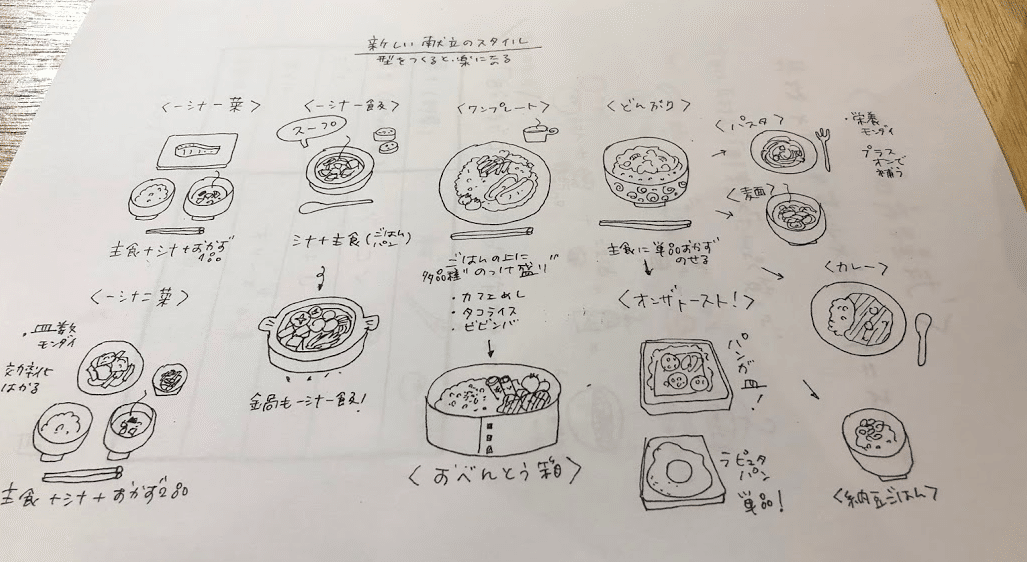 新しい献立のスタイル
型をつくると楽になる
〈一汁一菜〉
主食+汁+おかず
1品
〈一汁一飯〉
スープ
汁+主食(ごはん
パン)
鍋も一汁一飯!
〈ワンプレート〉
ごはんの上に
多品種"のっけ盛り"
・カフェめし
・タコライス
・ビビンバ
〈おべんとう箱〉
〈どんぶり〉
主食に単品おかず
のせる
〈パスタ〉
・栄養
モンダイ
プラス
オンで
補う
〈麺〉
〈カレー〉
〈納豆ごはん〉
〈オンザトースト!〉
パンが
皿!
ラピュタ
パン
単品!
〈一汁二菜〉
・皿数
モンダイ
効率化
はかる
主食+汁+おかず2品